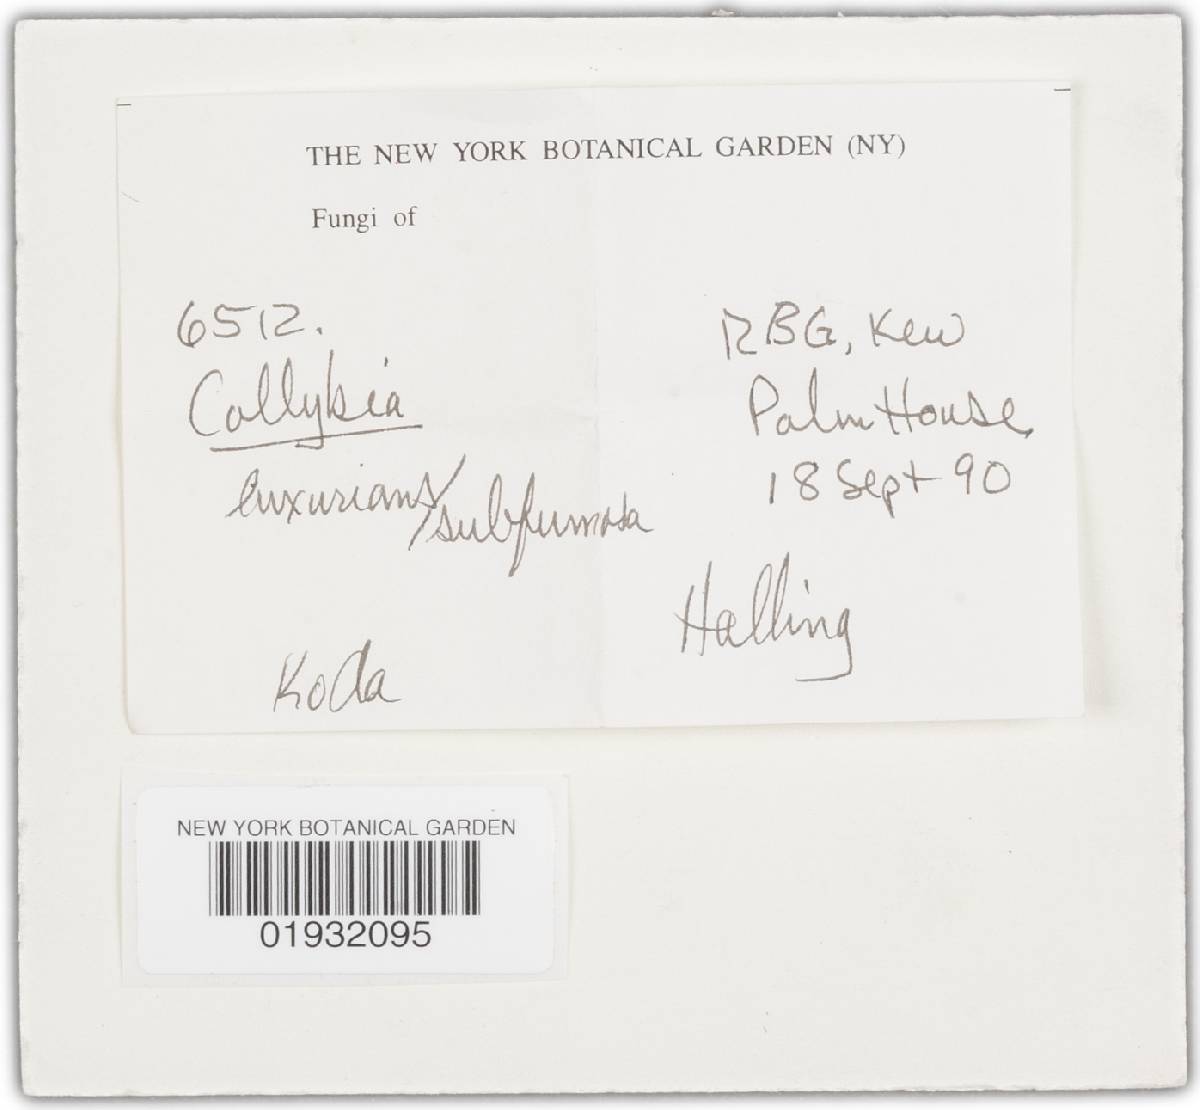 THE NEW YORK BOTANICAL GARDEN (NY)
Fungi of
6512.
Collybia
luxurians/subfumosa
Koda
RBG, Kew
Palm House,
18 Sept 90
Halling
NEW YORK BOTANICAL GARDEN
01932095